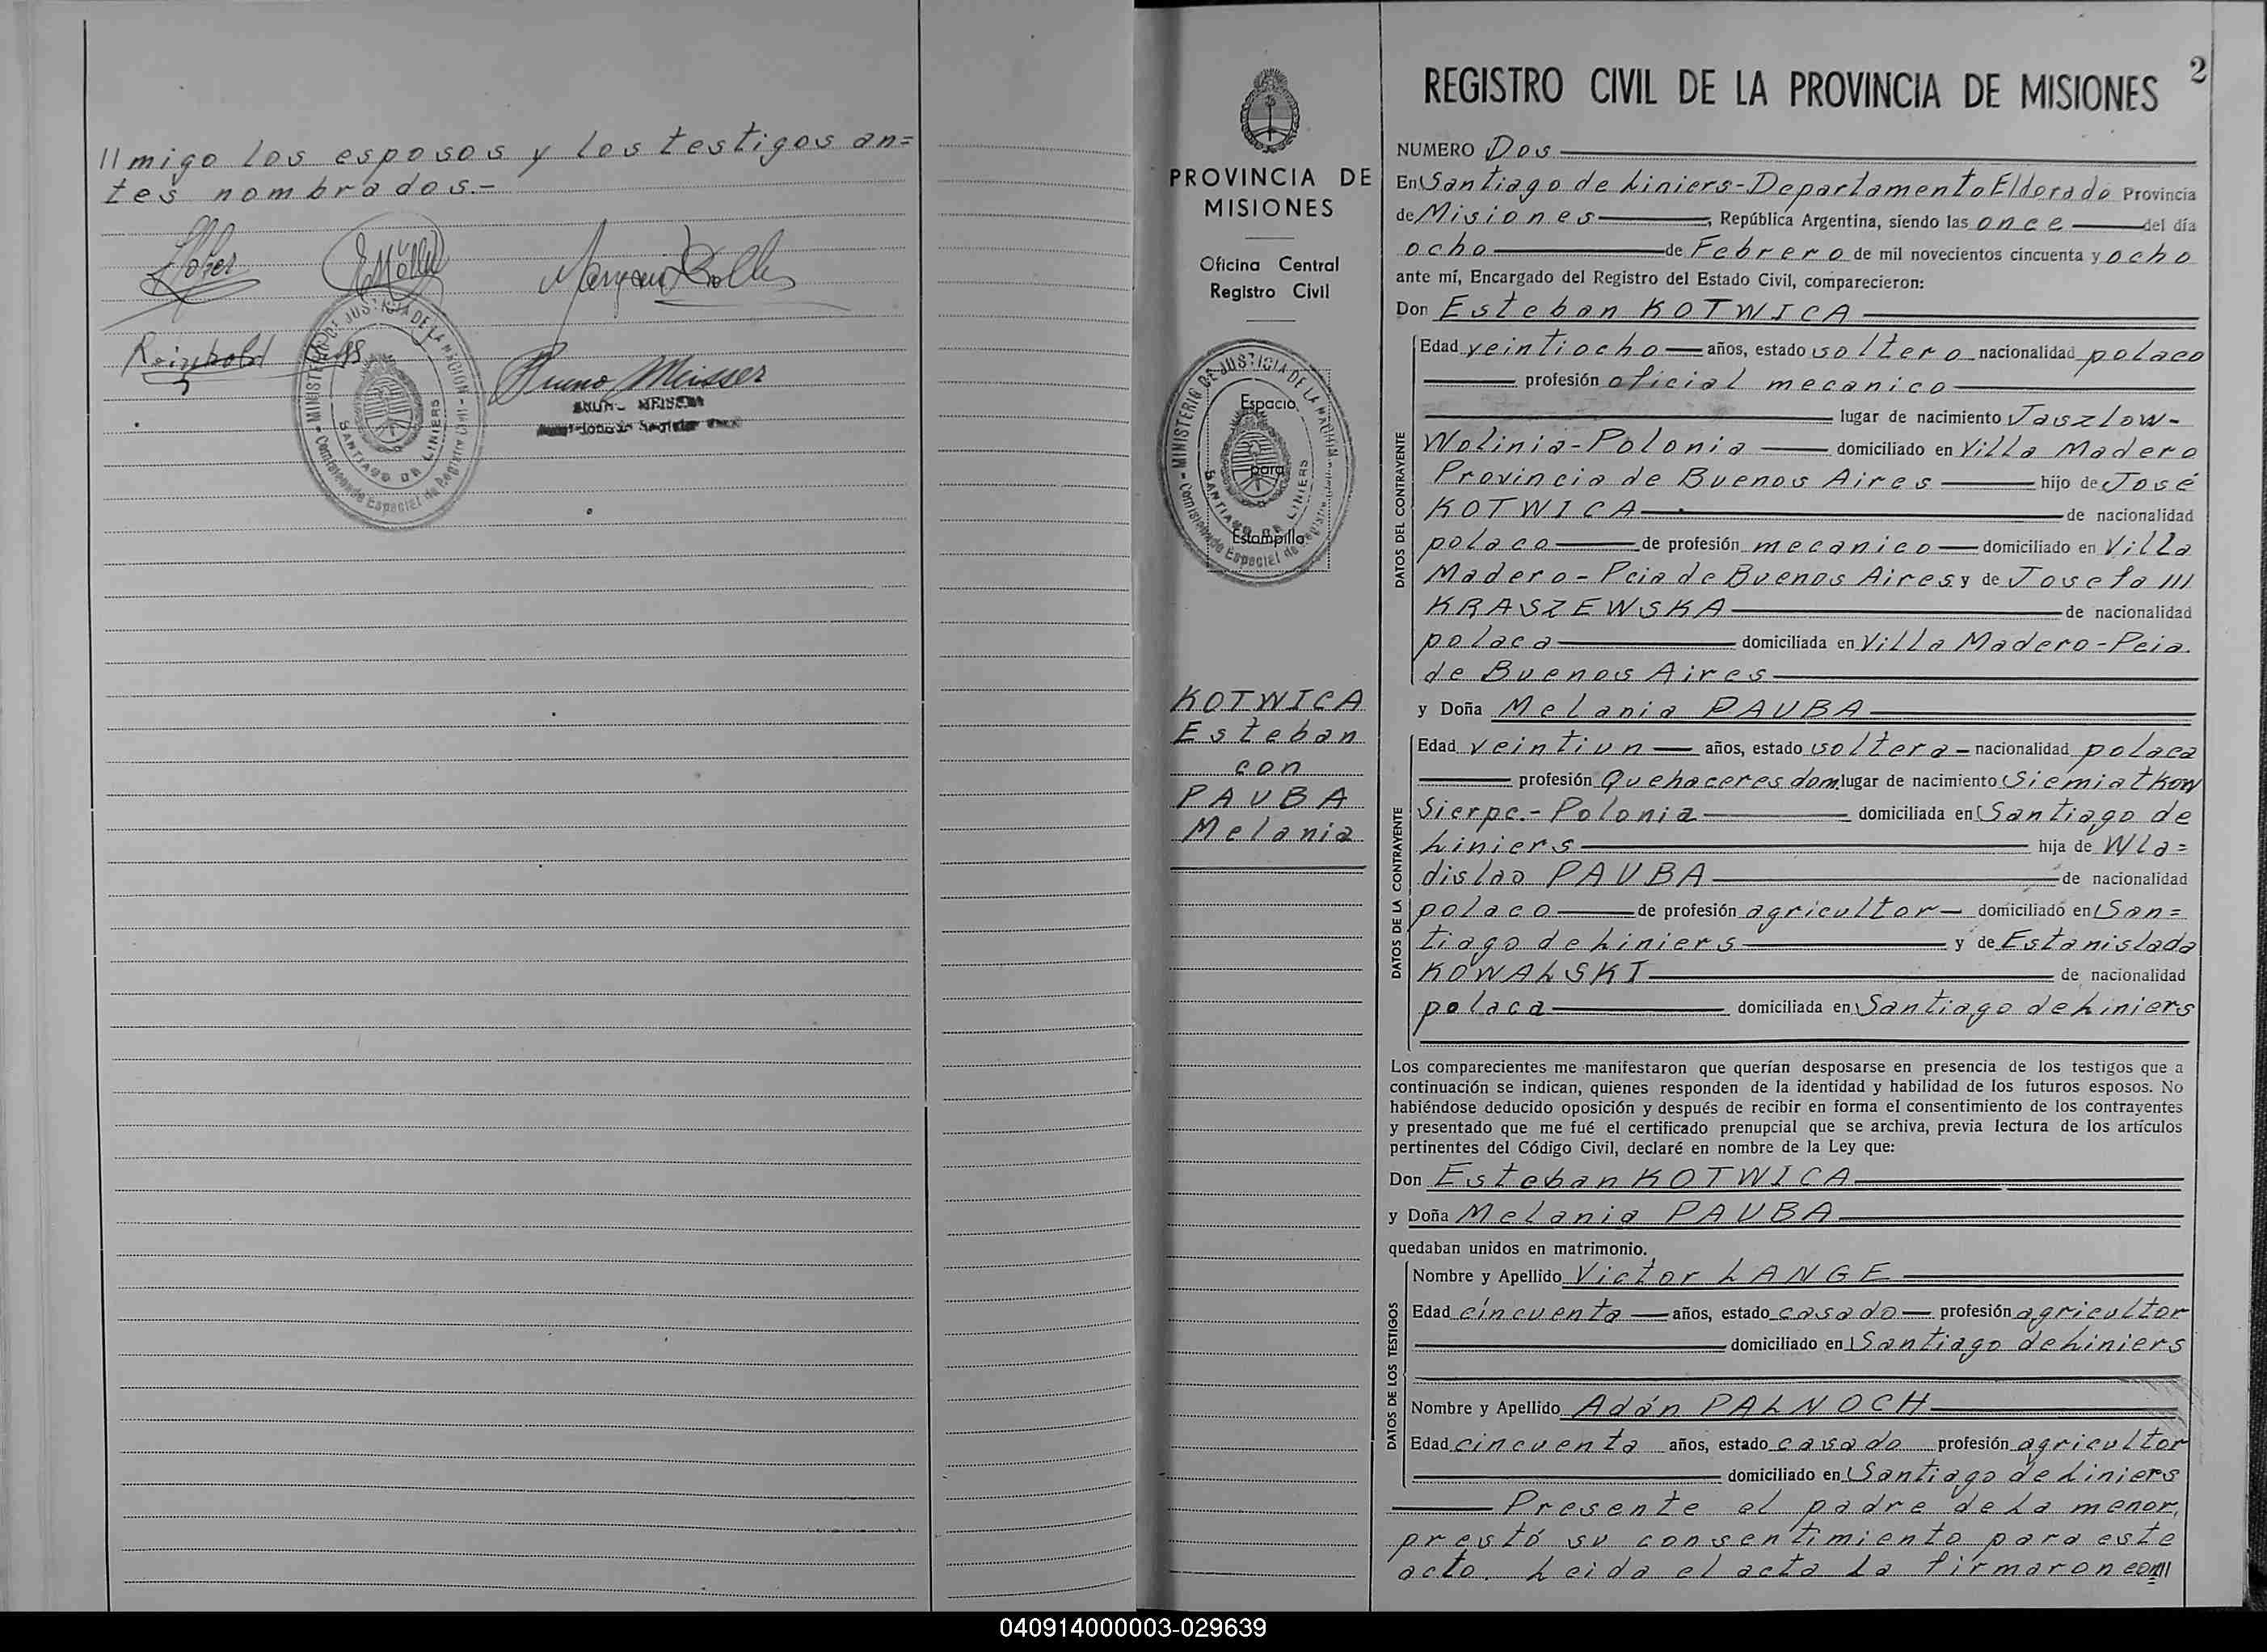 //migo los esposos y los testigos an=
tes nombrados.-
Reinhold
Bruno Meisser
MINISTERIO DE JUSTICIA DE LA NACION
SANTIAGO DE LINIERS
2
REGISTRO CIVIL DE LA PROVINCIA DE MISIONES
PROVINCIA DE
MISIONES
Oficina Central
Registro Civil
MINISTERIO DE JUSTICIA DE LA NACION
SANTIAGO DE LINIERS
Espacio
para
Estampilla
KOTWICA
Esteban
con
PAUBA
Melania
NUMERO Dos
En Santiago de Liniers-Departamento Eldorado Provincia
de Misiones, República Argentina, siendo las once del día
ocho de Febrero de mil novecientos cincuenta y ocho
ante mí, Encargado del Registro del Estado Civil, comparecieron:
Don Esteban KOTWICA
DATOS DEL CONTRAYENTE
Edad veintiocho años, estado soltero nacionalidad polaco
profesión oficial mecanico
lugar de nacimiento Jaszlow-
Wolinia-Polonia domiciliado en Villa Madero
Provincia de Buenos Aires hijo de José
KOTWICA de nacionalidad
polaco de profesión mecanico domiciliado en Villa
Madero-Pcia de Buenos Aires y de Josefa ///
KRASZEWSKA de nacionalidad
polaca domiciliada en Villa Madero-Pcia.
de Buenos Aires
y Doña Melania PAUBA
DATOS DE LA CONTRAYENTE
Edad veintiun años, estado soltera nacionalidad polaca
profesión Quehaceres dom. lugar de nacimiento Siemiatkow
Sierpc.-Polonia domiciliada en Santiago de
Liniers hija de Wla=
dislao PAUBA de nacionalidad
polaco de profesión agricultor domiciliado en San=
tiago de Liniers y de Estanislada
KOWALSKI de nacionalidad
polaca domiciliada en Santiago de Liniers
Los comparecientes me manifestaron que querían desposarse en presencia de los testigos que a
continuación se indican, quienes responden de la identidad y habilidad de los futuros esposos. No
habiéndose deducido oposición y después de recibir en forma el consentimiento de los contrayentes
y presentado que me fué el certificado prenupcial que se archiva, previa lectura de los artículos
pertinentes del Código Civil, declaré en nombre de la Ley que:
Don Esteban KOTWICA
y Doña Melania PAUBA
quedaban unidos en matrimonio.
DATOS DE LOS TESTIGOS
Nombre y Apellido Victor LANGE
Edad cincuenta años, estado casado profesión agricultor
domiciliado en Santiago de Liniers
Nombre y Apellido Adán PALNOCH
Edad cincuenta años, estado casado profesión agricultor
domiciliado en Santiago de Liniers
Presente el padre de la menor,
prestó su consentimiento para este
acto. Leida el acta la firmaron con//
040914000003-029639